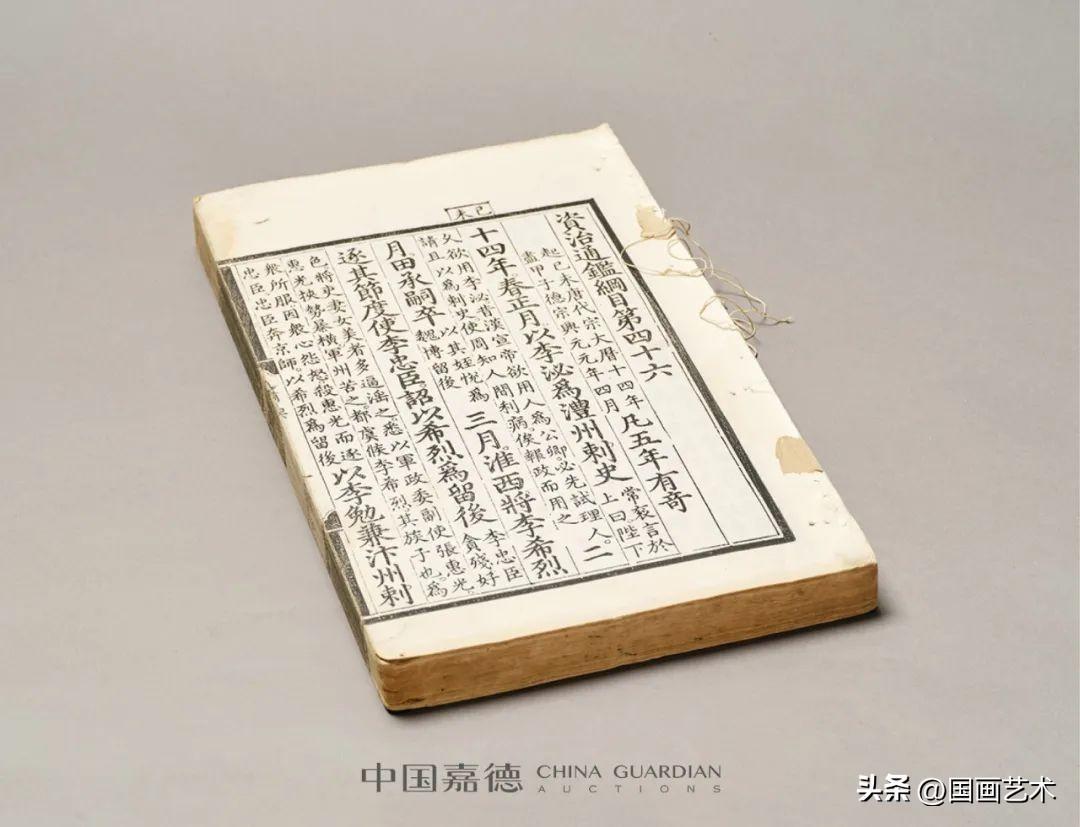 己未
資治通鑑綱目第四十六
起己未唐代宗大曆十四年
盡甲子德宗興元元年四月
凡五年有奇
十四年春正月以李泌爲澧州刺史
常袞言於
上曰陛下
久欲用李泌昔漢宣帝欲用人爲公卿必先試理人。
請且以爲刺史使周知人間利病俟報政而用之
二
月田承嗣卒
以其姪悅爲
魏博留後
三月淮西將李希烈
逐其節度使李忠臣詔以希烈爲留後
李忠臣
貪殘好
色將吏妻女美者多逼淫之。悉以軍政委副使張惠光。
惠光挾勢暴橫軍州苦之。都虞候李希烈其族子也。爲
衆所服因衆心怨怒殺惠光而逐
忠臣忠臣奔京師。以希烈爲留後
以李勉兼汴州刺
中国嘉德 CHINA GUARDIAN
AUCTIONS
头条 @国画艺术